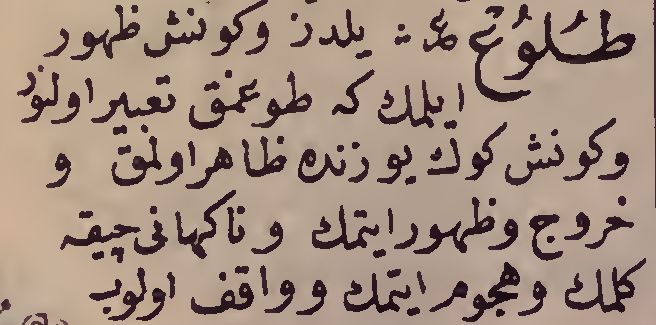 طُلُوعْ ع‍ ː يلدز و كونش ظهور
ايلمك كه طوغمق تعبير اولنور
و كونش كوك يوزنده ظاهر اولمق و
خروج و ظهور ايتمك و ناكهانى چيقه
كلمك و هجوم ايتمك و واقف اولوب